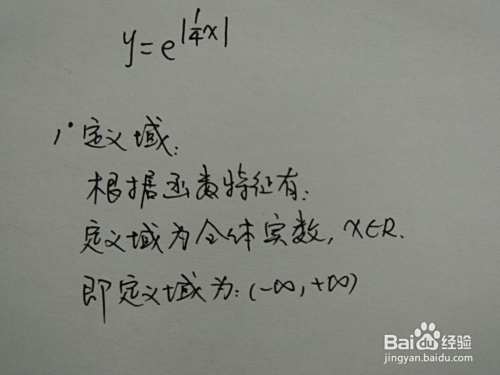 y=e^{|\frac{1}{4}x|}
1°定义域:
根据函数特征有:
定义域为全体实数, x∈R.
即定义域为:(-∞,+∞)
Baidu 经验
jingyan.baidu.com